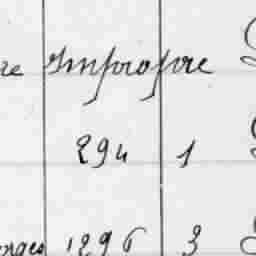 re Impropre
294 1
orges 1296 3